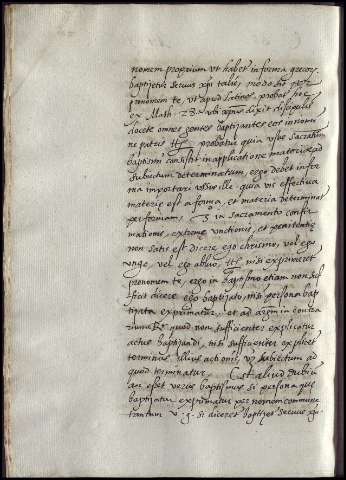 nomem proprium vt habet in forma grecor.
baptizetur servus xpi talis, modo sit per
pronomem te, vt apud Latinos, probat hoc
ex Math. 28. vbi apus dixit discipulis
docete omnes gentes baptizantes eos in nomi
ne patris probatur quia vsus sacramti
baptismi consistit in applicatione materiae ad
subiectum determinatum, ergo debet in for
ma importari vsus ille. quia vis effectiua
materie est a forma, et materia determinat
per formam. 3 in sacramento confir
mationis, extreme vnctionis, et penitentie
non satis est dicere ego chrismo, vel ego
vngo, vel ego absoluo, nisi exprimeret
pronomem te, ergo in baptismo etiam non suf
ficit dicere ego baptizo, nisi persona bap
tizata exprimatur, et ad argm in contra
rium quod non sufficienter explicatur
actus baptizandi, nisi sufficienter explicet
terminus illius actionis, vt subiectum ad
quod terminatur. Est aliud dubiu
an esset verus baptismus si persona que
baptizatur exprimatur per nomem commune
tantum v. g. si diceret baptizet servus xpi